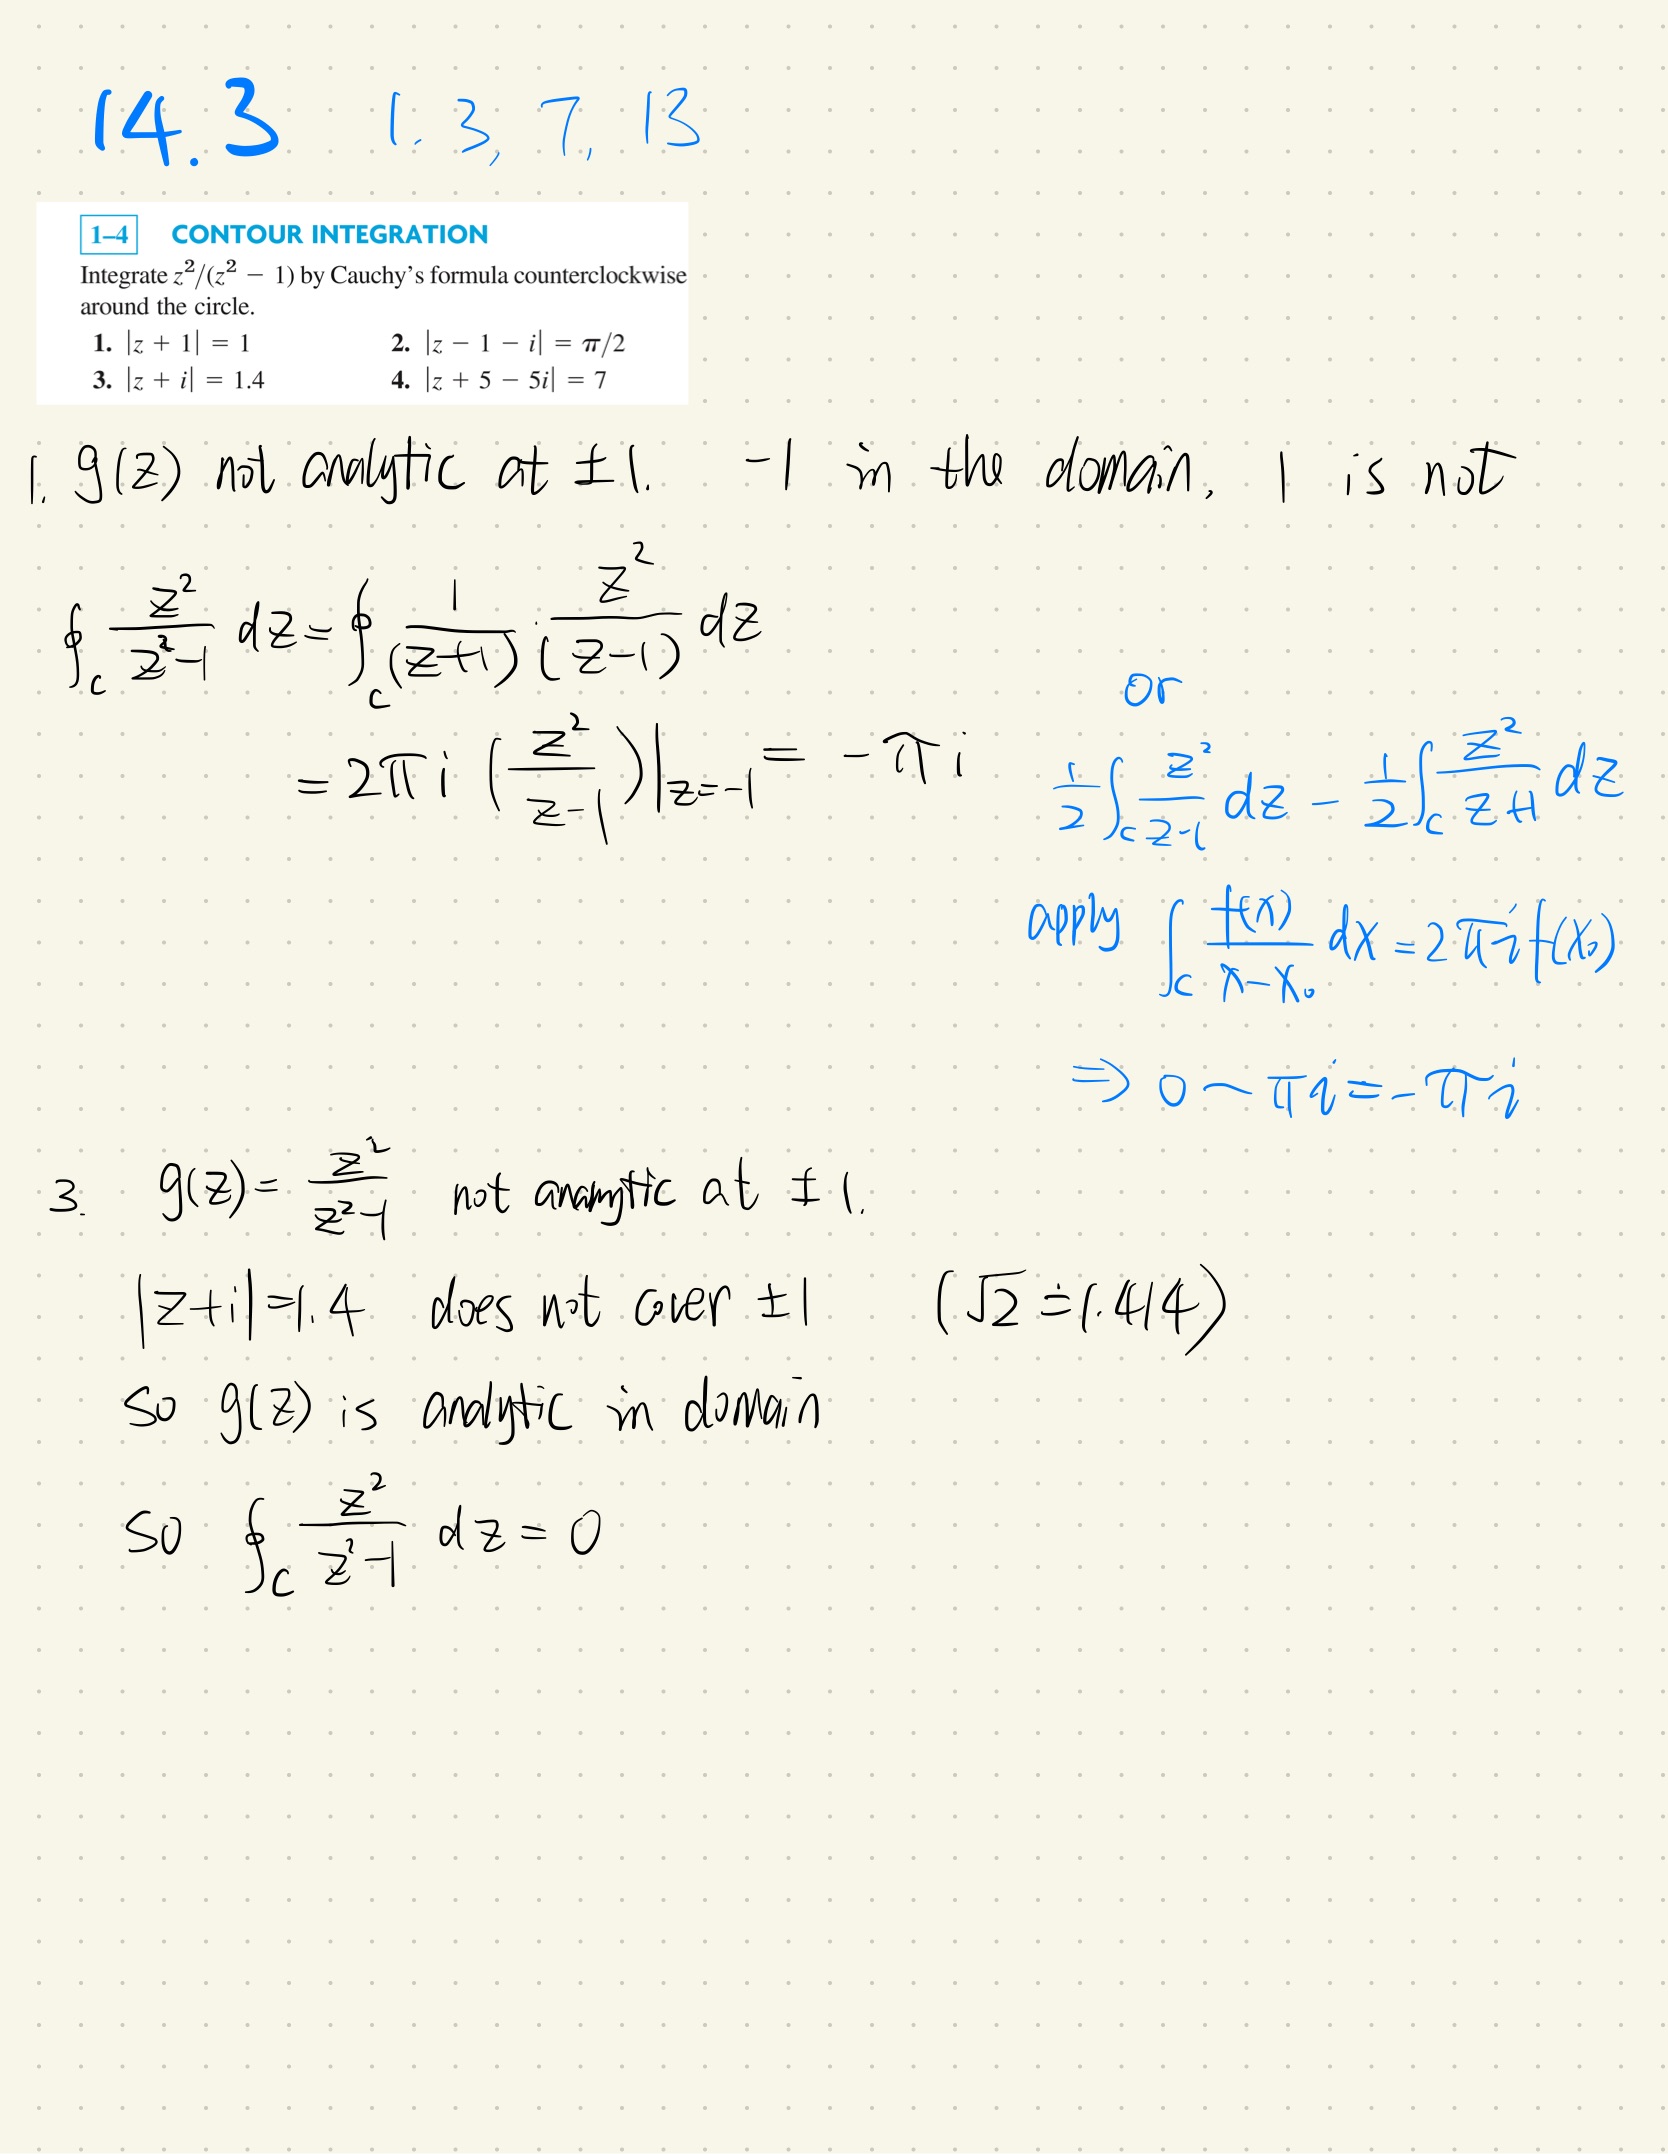 14.3 1. 3, 7, 13
1–4 CONTOUR INTEGRATION
Integrate z²/(z² − 1) by Cauchy's formula counterclockwise
around the circle.
1. |z + 1| = 1 2. |z − 1 − i| = π/2
3. |z + i| = 1.4 4. |z + 5 − 5i| = 7
1. g(z) not analytic at ±1. −1 in the domain, 1 is not
∮_C z²/(z²−1) dz = ∮_C 1/(z+1) · z²/(z−1) dz
= 2πi (z²/(z−1))|_{z=−1} = −πi
or
1/2 ∫_C z²/(z−1) dz − 1/2 ∫_C z²/(z+1) dz
apply ∫_C f(x)/(x−x₀) dx = 2πi f(x₀)
⇒ 0 − πi = −πi
3. g(z) = z²/(z²−1) not analytic at ±1.
|z+i|=1.4 does not cover ±1 (√2 ≐ 1.414)
So g(z) is analytic in domain
So ∮_C z²/(z²−1) dz = 0